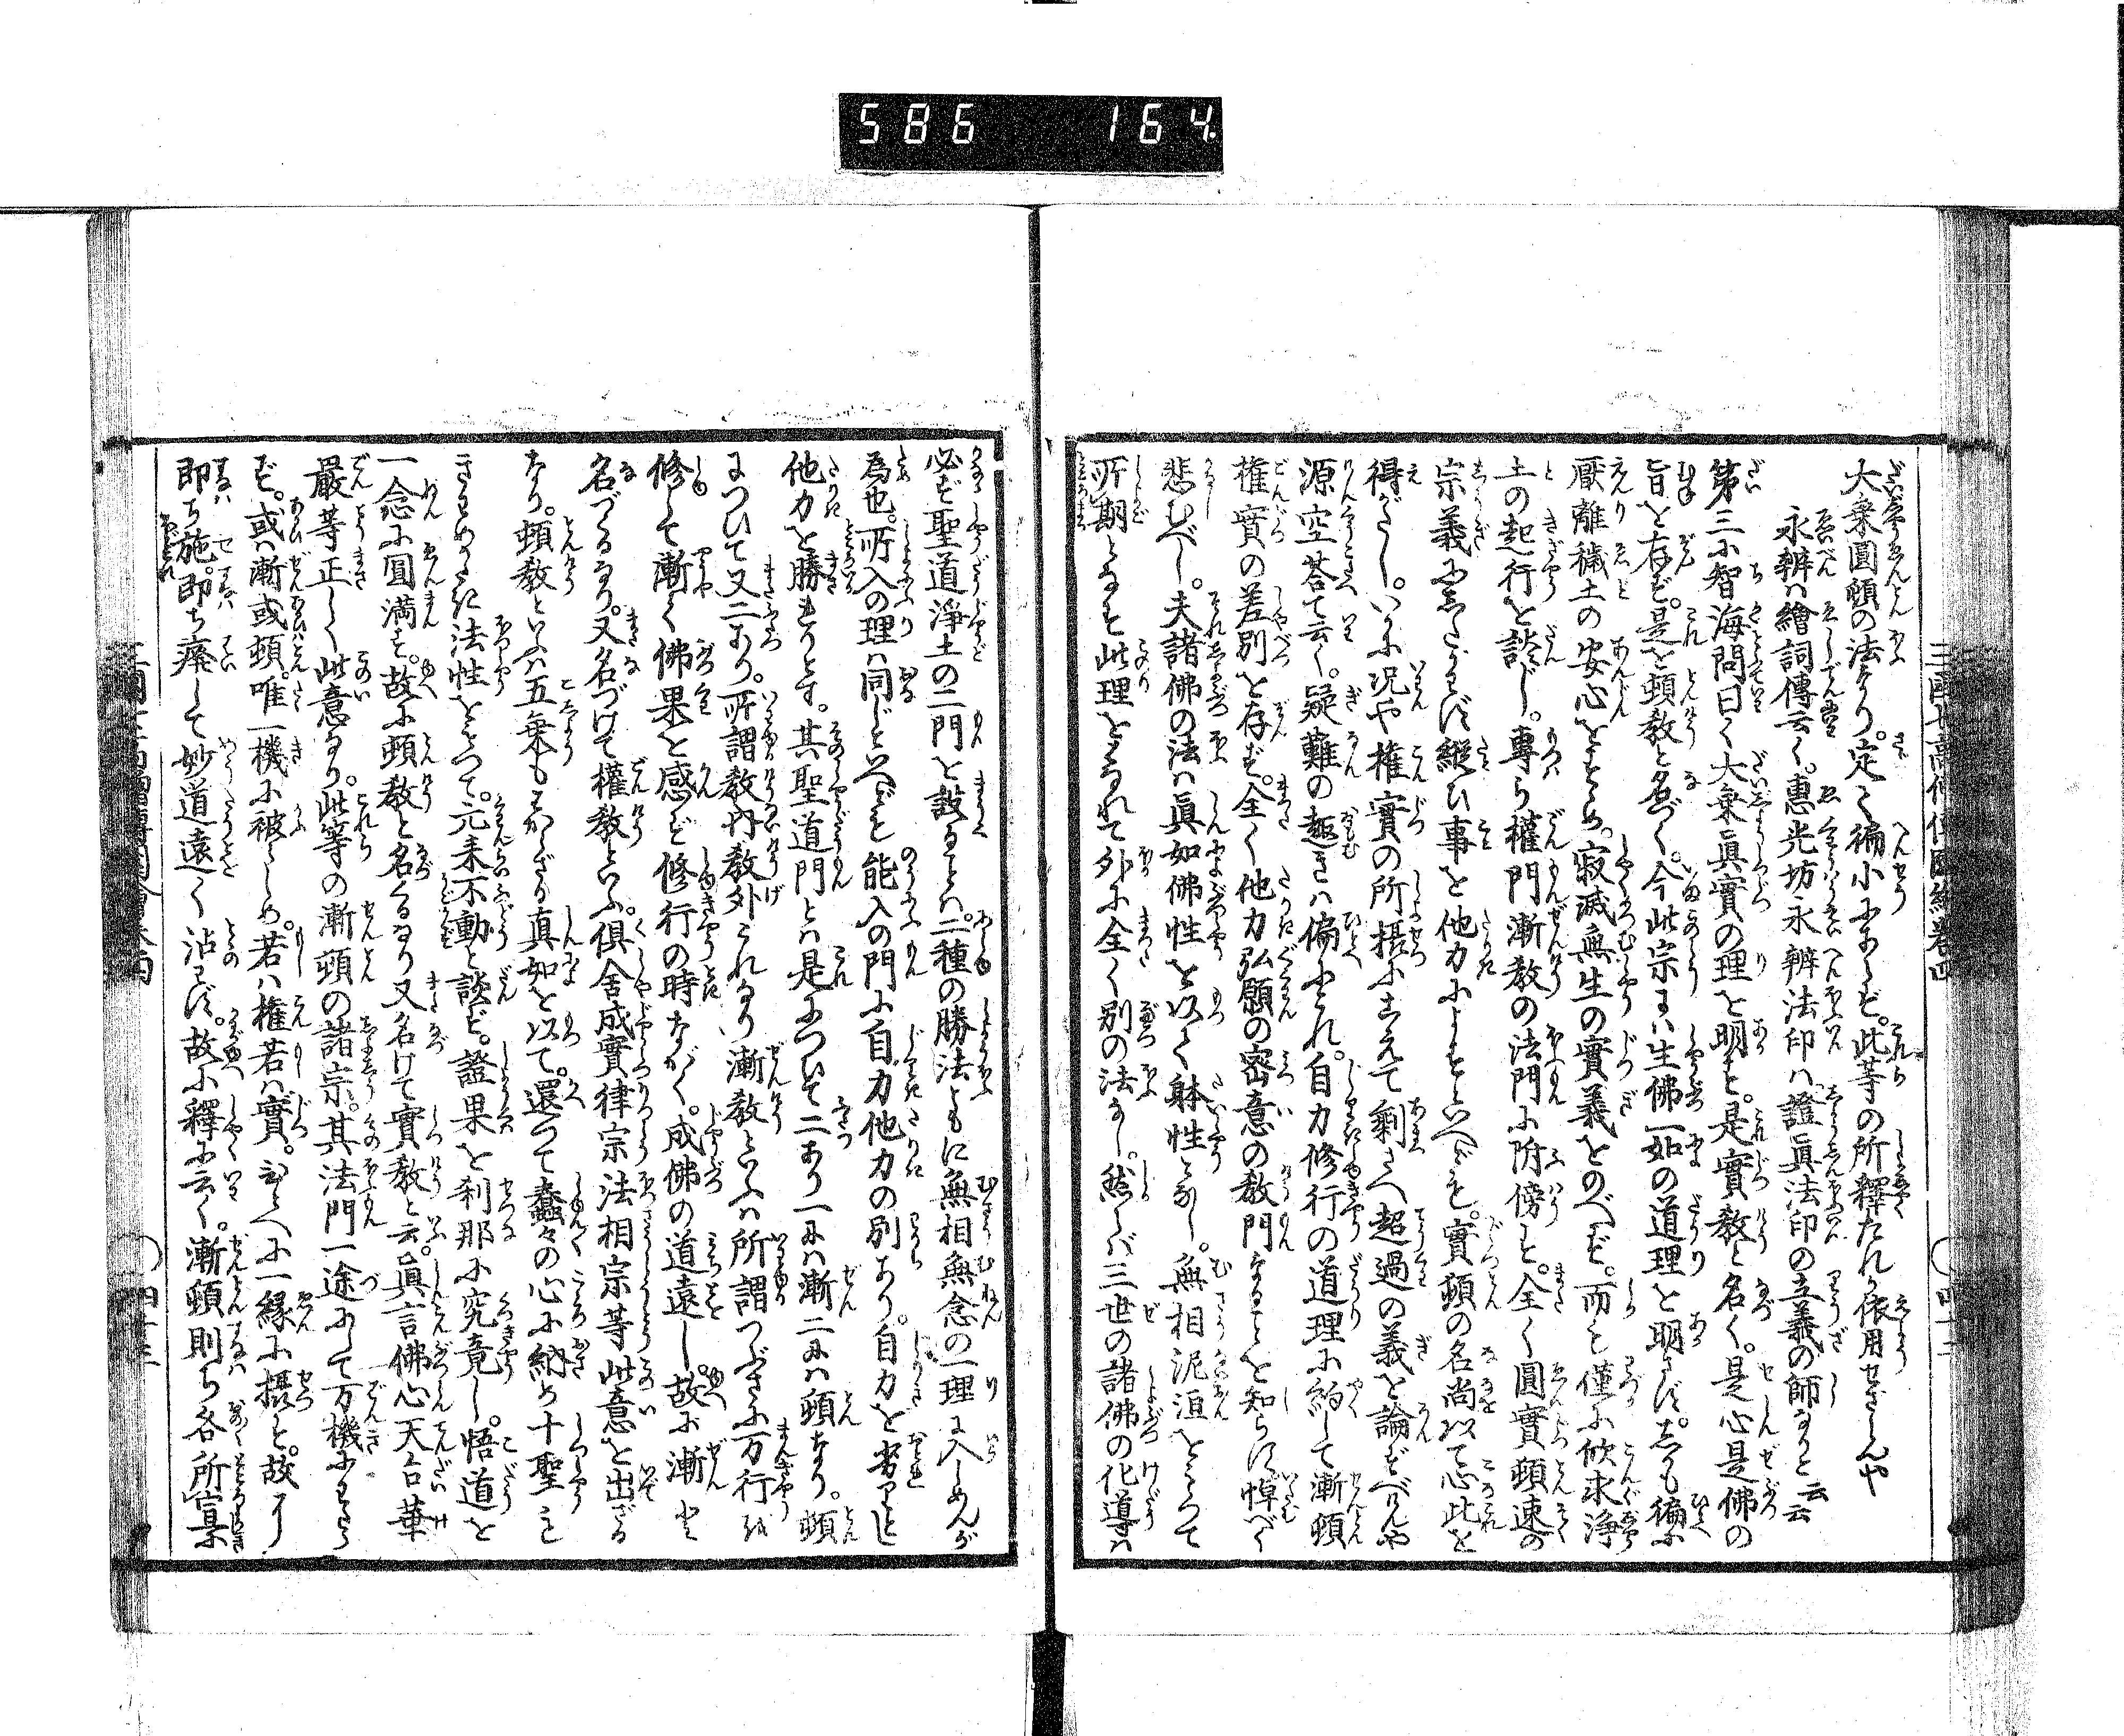 586 164.
大乗圓頓の法なり。定て徧小にあらず。此等の所釋たれか依用せざらんや
永辨ハ繪詞傳云く。惠光坊永辨法印ハ證眞法印の立義の師なりと云云
第三小智海問曰く大乗眞實の理を明す。是實教と名く。是心是佛の
旨を存ず。是を頓教と名づく。今此宗にハ生佛一如の道理を明さず。しかも徧に
厭離穢土の安心をすゝめ。寂滅無生の實義をのべず。而も僅に欣求浄
土の起行を談じ。專ら權門漸教の法門に附傍す。全く圓實頓速の
宗義にあたらず縦ひ事を他力によすといへども。實頓の名尚以て心此を
得がたし。いかに況や権實の所摂にこえて剰さへ超過の義を論ずべけんや
源空答て云く。疑難の趣きハ偏にこれ。自力修行の道理に約して漸頓
権實の差別を存ず。全く他力弘願の密意の教門なることを知らず悼べく
悲むべし。夫諸佛の法ハ眞如佛性を以て躰性とし。無相泥洹をもつて
所期となす此理をはなれて外に全く別の法なし。然レバ三世の諸佛の化導ハ
必ず聖道淨土の二門を設ることハ。二種の勝法ともに無相無念の一理に入しめんが
為也。所入の理ハ同じといへども能入の門に自力他力の別あり。自力を劣りとし
他力を勝れりとす。其聖道門とハ是について二あり一にハ漸二にハ頓なり。頓
につひて又二あり。所謂教内教外これなり漸教といふハ所謂つぶさに万行を
修して漸く佛果を感ず修行の時ながく。成佛の道遠し。故に漸と
名づるなり。又名づけて權教といふ。倶舎成實律宗法相宗等此意を出ざる
なり。頓教といふハ五乗もわかざる真如を以て。還つて蠢々の心に納め十聖も
きわめがたき法性をもつて。元来不動と談ず。證果を刹那に究竟し。悟道を
一念に圓満す。故に頓教と名くるなり又名けて實教と云。眞言佛心天台華
嚴等正しく此意なり。此等の漸頓の諸宗。其法門一途にして万機にわたら
ず。或ハ漸或頓。唯一機に被らしめ。若ハ権若ハ實。ひとへに一縁に摂す。故に
即ち施。即ち療して妙道遠く沾ハず。故に釋に云く。漸頓則ち各所宜に